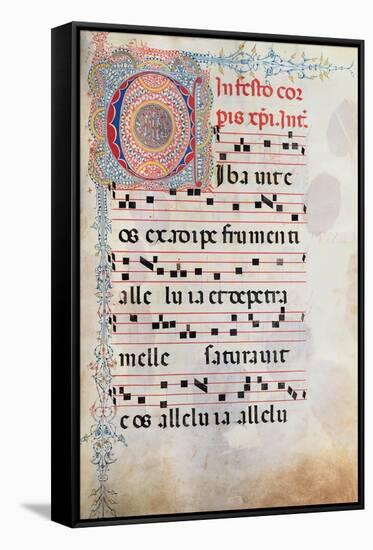 In festo cor
pis xp̄i. Int̄.
Cibauit e
os ex adipe frumenti
alle lu ia et de petra
melle saturauit
e os allelu ia allelu